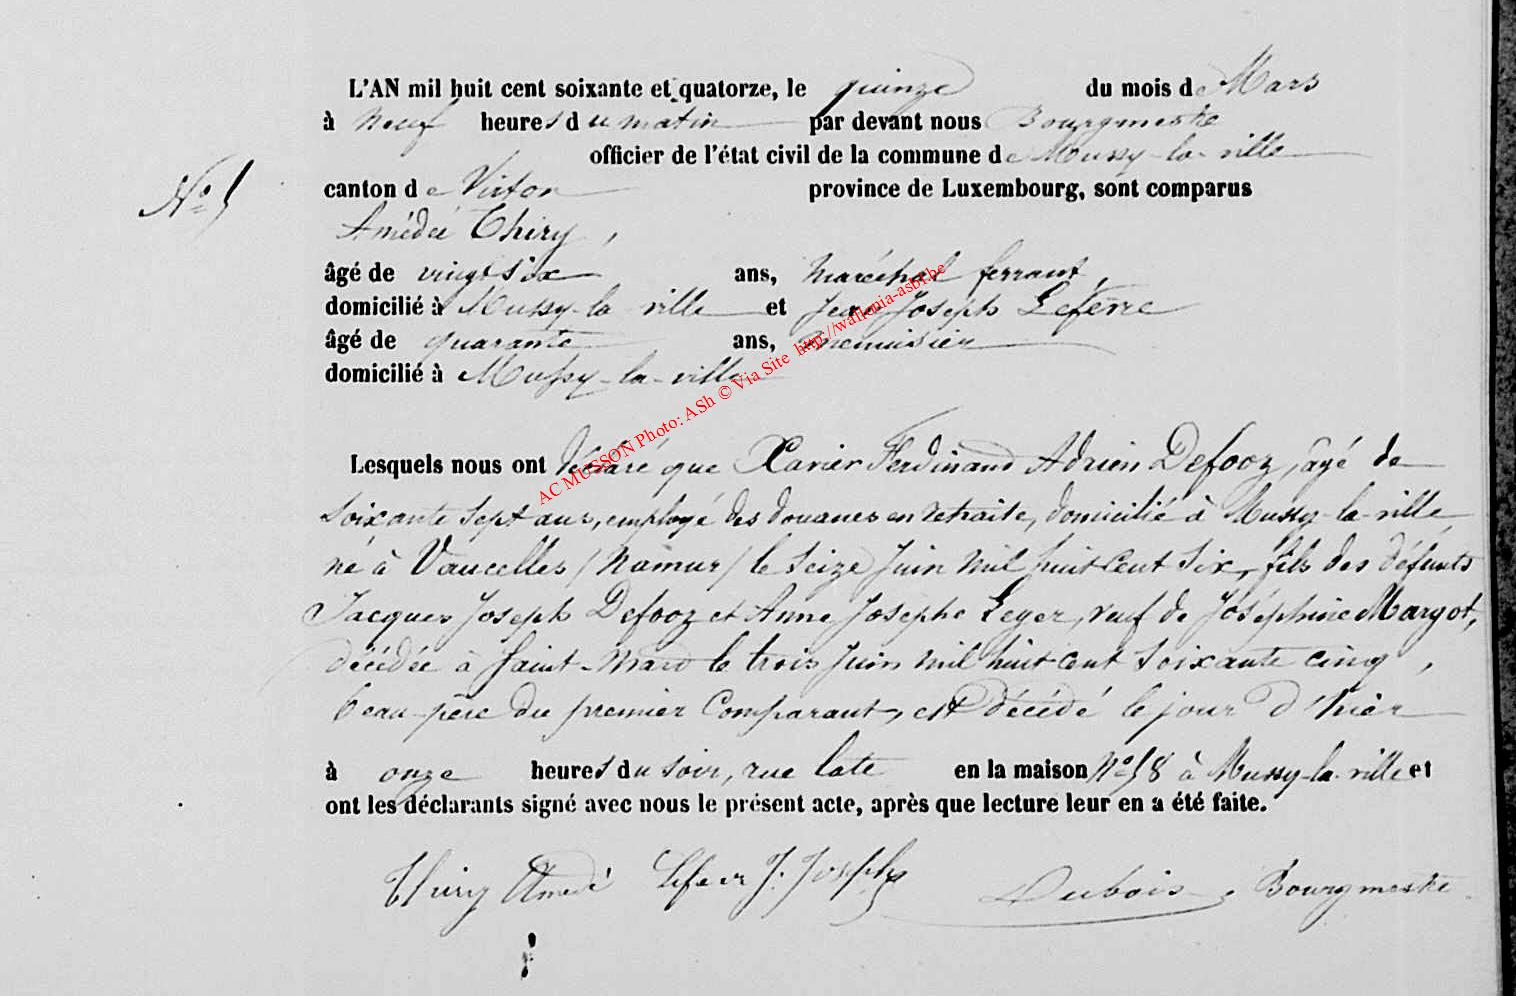 L'AN mil huit cent soixante et quatorze, le quinze du mois de Mars
à neuf heures du matin par devant nous Bourgmestre
officier de l'état civil de la commune de Mussy-la-ville
N° 5
canton de Virton province de Luxembourg, sont comparus
Amédée Thiry,
âgé de vingt six ans, maréchal ferrant,
domicilié à Mussy-la-ville et Jean Joseph Lefèvre
âgé de quarante ans, menuisier
domicilié à Mussy-la-ville
AC MUSSON Photo: ASh © Via Site http://wallonia-asbl.be
Lesquels nous ont déclaré que Xavier Ferdinand Adrien Defooz, âgé de
soixante sept ans, employé des douanes en retraite, domicilié à Mussy-la-ville
né à Vaucelles (Namur) le seize Juin mil huit cent six, fils des défunts
Jacques Joseph Defooz et Anne Josephe Leger, veuf de Joséphine Margot,
décédée à Saint-Mard le trois Juin mil huit cent soixante cinq,
beau-père du premier Comparant, est décédé le jour d'hier
à onze heures du soir, rue late en la maison N° 58 à Mussy-la-ville et
ont les déclarants signé avec nous le présent acte, après que lecture leur en a été faite.
Thiry Amedé Lefevr J. Joseph Dubois, Bourgmestre